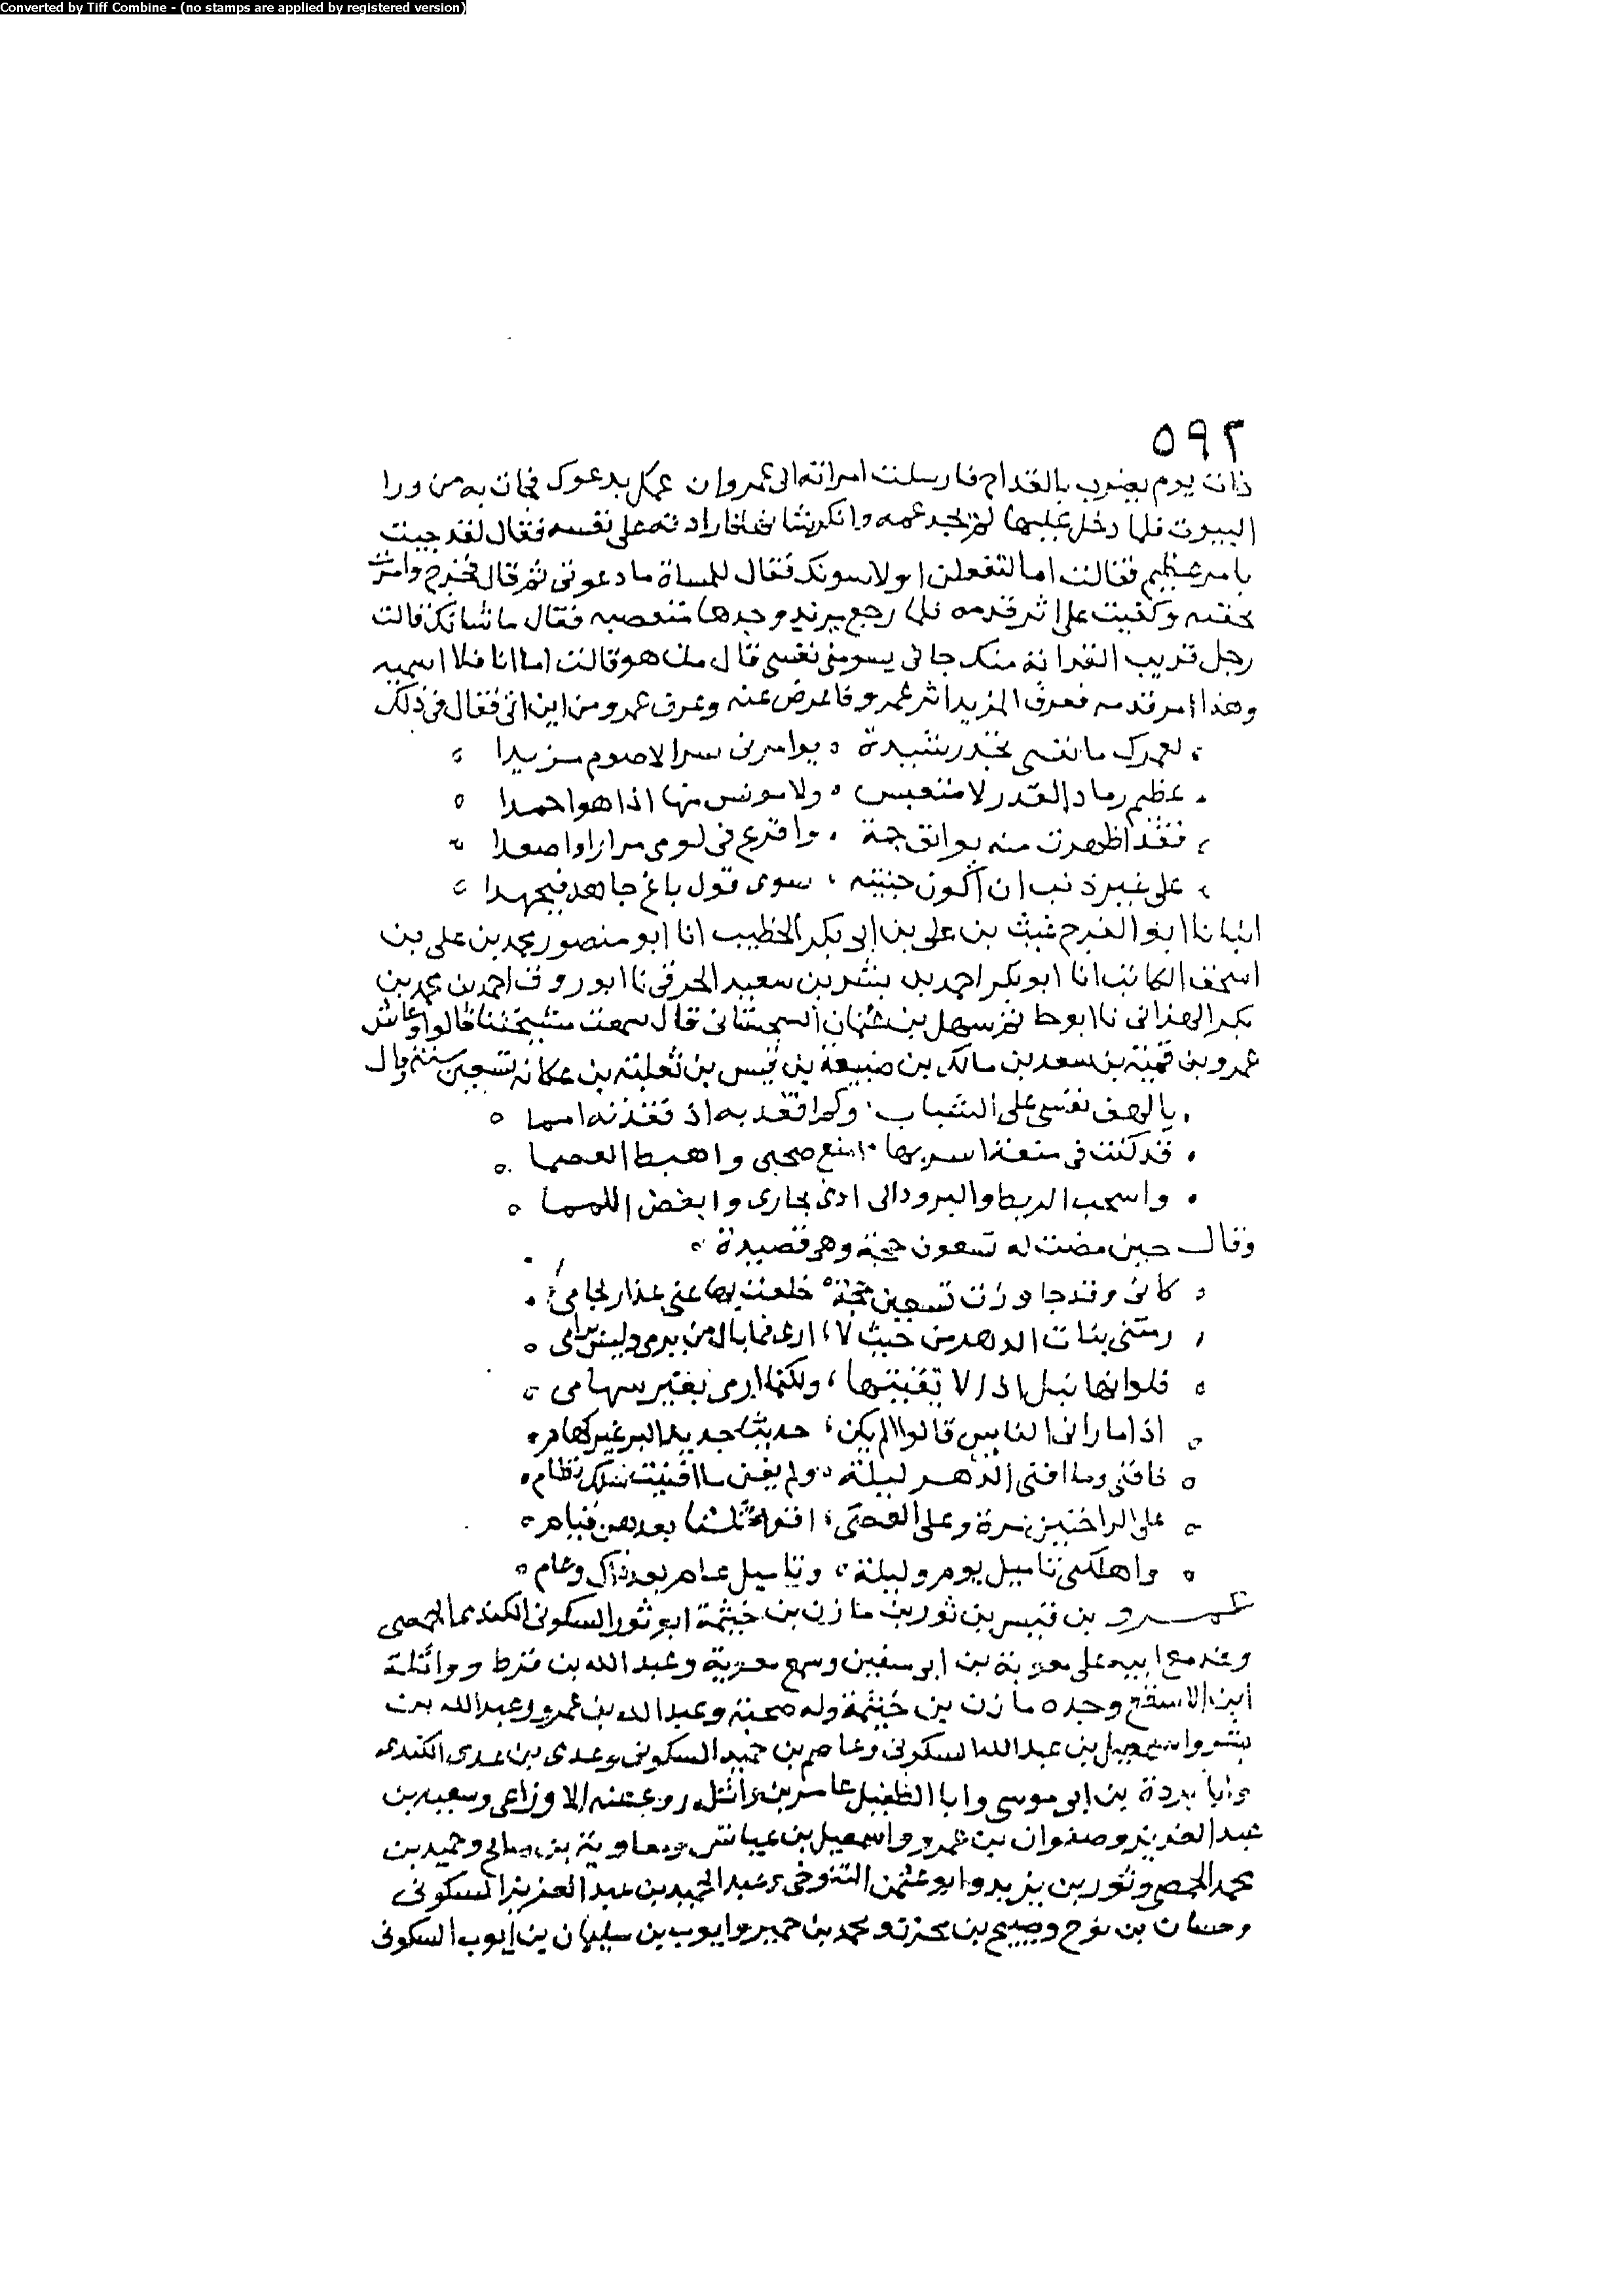 Converted by Tiff Combine - (no stamps are applied by registered version)
٥٩٢
ذات يوم يضرب بالقداح فارسلت امراته الى عمرو ان عمك يدعوك فجات به من ورا
البيوت فلما دخل عليها لم يجد عمه وانكر شانها فارادته على نفسه فقال لقد جيت
بامر عظيم فقالت اما لتفعلن او لاسونك فقال للمساة ما دعوتني ثم قال فخرج وامرت
بجفنه وكفيت على اثر قدمه فلما رجع مرثد وجدها متغضبه فقال ما شانك قالت
رجل قريب القرابة منك جاني يسومني نفسي قال من هو قالت اما انا فلا اسميه
وهذا اثر قدمه فعرف المزيد اثر عمرو فاعرض عنه وعرف عمرو من اين اتى فقال في ذلك
لعمرك ما نفسي بجد رشيدة يوامرني سرا لاصرم مزيدا
عظيم رماد القدر لا متعبس ولا مونس منها اذا هو احمدا
فقد اظهرت منه بوائق جمة وافرع في لومي مرارا واصعدا
على غير ذنب ان اكون جنيته سوى قول باغ جاهد فتجهدا
انبانا ابو الفرج غيث بن علي بن ابي بكر الخطيب انا ابو منصور محمد بن علي بن
اسحق الكاتب انا ابو بكر احمد بن بشر بن سعيد الخرقي نا ابو روق احمد بن محمد بن
بكر الهزاني نا ابو حاتم سهل بن عثمان السجستاني قال سمعت مشيختنا قالوا وعاش
عمرو بن قميئة بن سعد بن مالك بن ضبيعة بن قيس بن ثعلبة بن عكابة تسعين سنة وقال
يا لهف نفسي على الشباب ولم افقد به اذ فقدته امما
قد كنت في منعة اسر بها امنع صحبي واهبط العصما
واسحب الريط والبرود الى ادنى تجاري وانفض اللمما
وقال حين مضت له تسعون حجة وهي قصيدة
كاني وقد جاوزت تسعين حجة خلعت بها عني عذار لجامي
رمتني بنات الدهر من حيث لا ارى فما بال من يرمى وليس برامي
فلو انها نبل اذا لا تقيتها ولكنما ارمى بغير سهامي
اذا ما راني الناس قالوا الم يكن حديثا جديد البز غير كهام
فافنى وما افنى الدهر ليلة ولم يغن ما افنيت سلك نظام
على الراحتين مرة وعلى العصى انوء ثلثا بعدهن قيام
واهلكني تاميل يوم وليلة وتاميل عام بعد ذاك وعام
عمرو بن قيس بن ثور بن مازن بن خيثمة ابو ثور السكوني الكندي الحمصي
وفد مع ابيه على معوية بن ابي سفين وسمع معوية وعبد الله بن قرط وواثلة
ابن الاسقع وجده مازن بن خيثمة وله صحبة وعبد الله بن عمرو وعبد الله بن
بشر واسمعيل بن عبد الله السكوني وعاصم بن حميد السكوني وعدي بن عدي الكندي
وابا بردة بن ابي موسى وابا الطفيل عامر بن واثلة روى عنه الاوزاعي وسعيد بن
عبد العزيز وصفوان بن عمرو واسمعيل بن عياش ومعاوية بن صالح وحميد بن
محمد الحمصي وثور بن يزيد وابو عثمن التنوخي وعبد الحميد بن عبد العزيز السكوني
وحسان بن نوح وصبيح بن محرز ومحمد بن حمير وايوب بن سليمان بن ايوب السكوني